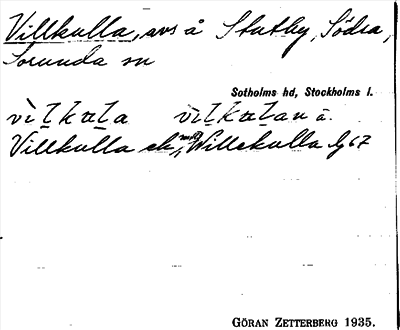 Villkulla, avs å Stutby, Södra,
Sorunda sn
Sotholms hd, Stockholms l.
Villkulla ek, Willekulla Gj 67
GÖRAN ZETTERBERG 1935.